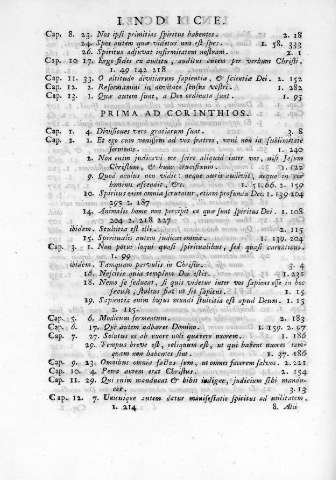 INDICE.
Cap. 8. 23. Nos ipsi primitias spiritus habentes. 2. 18
24. Spes autem quæ videtur non est spes. 1. 58. 333
26. Spiritus adjuvat infirmitatem nostram. 2. 1
Cap. 10 17. Ergo fides ex auditu, auditus autem per verbum Christi.
1. 49 142 218
Cap. 11. 33. O altitudo divitiarum sapientiæ, & scientiæ Dei. 2. 152
Cap. 12. 2. Reformamini in novitate sensus vestri. 1. 282
Cap. 13. 1. Quæ autem sunt, a Deo ordinata sunt. 1. 95
PRIMA AD CORINTHIOS.
Cap. 1. 4. Divisiones vero gratiarum sunt. 3. 8
Cap. 2. 1. Et ego cum venissem ad vos fratres, veni non in sublimitate
sermonis. 1. 240
2. Non enim judicavi me scire aliquid inter vos, nisi Jesum
Christum, & hunc crucifixum. 1. 122
9. Quod oculus non vidit: neque auris audivit, neque in cor
hominis ascendit, &c. 1. 51. 66. 2. 159
10. Spiritus enim omnia scrutatur, etiam profunda Dei. 1. 139 204
293 2. 187
14. Animalis homo non percipit ea quæ sunt Spiritus Dei. 1. 108
204 2. 218 227
ibidem. Stultitia est illi. 2. 115
15. Spiritualis autem judicat omnia. 1. 139. 204
Cap. 3. 1. Non potui loqui quasi spiritualibus, sed quasi carnalibus.
1. 99
ibidem. Tamquam parvulis in Christo. 3. 4
16. Nescitis quia templum Dei estis. 1. 231
18. Nemo se seducat, si quis videtur inter vos sapiens esse in hoc
sæculo, stultus fiat ut sit sapiens. 1. 15
19. Sapientia enim hujus mundi stultitia est apud Deum. 1. 15
2. 115.
Cap. 5. 6. Modicum fermentum. 2. 183
Cap. 6. 17. Qui autem adhæret Domino. 1. 159. 2. 97
Cap. 7. 27. Solutus es ab uxore noli quærere uxorem. 1. 186
29. Tempus breve est, reliquum est, ut qui habent uxores tamquam
non habentes sint. 1. 37. 186
Cap. 9. 23. Omnibus omnia factus sum, ut omnes facerem salvos. 2. 221
Cap. 10. 4. Petra autem erat Christus. 2. 154
Cap. 11. 29. Qui enim manducat & bibit indigne, judicium sibi manducat.
3. 13
Cap. 12. 7. Unicuique autem datur manifestatio spiritus ad utilitatem.
1. 214 8. Alii